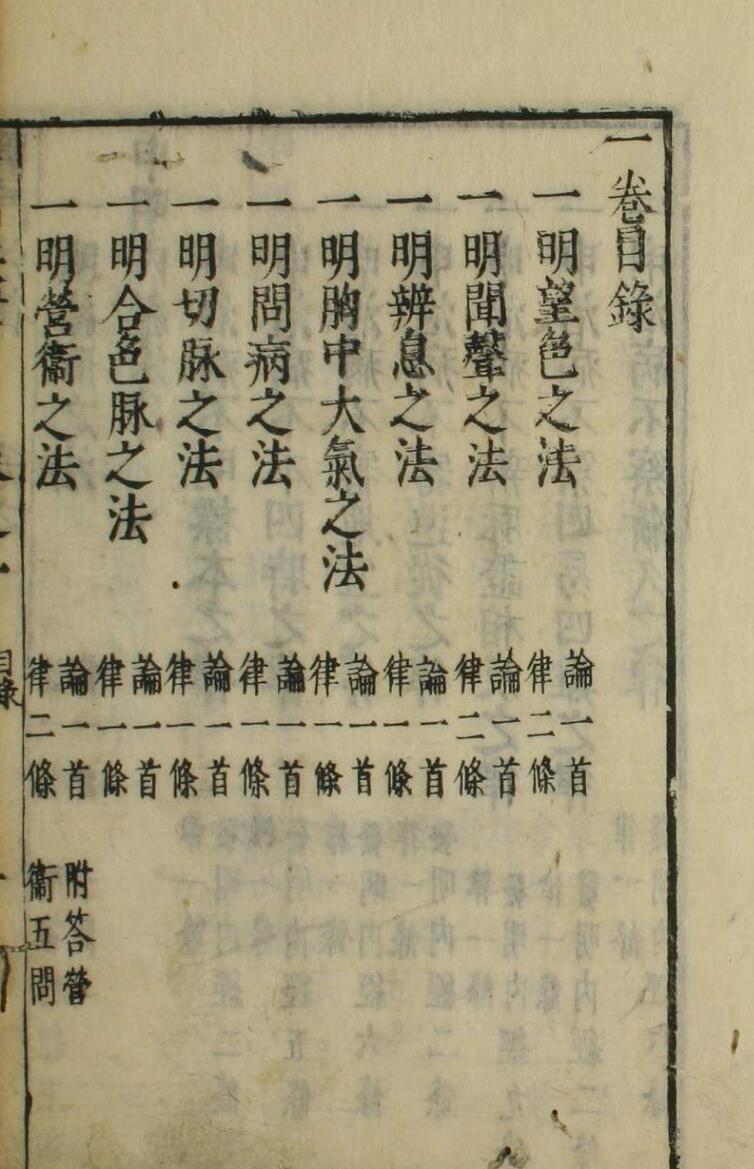 一卷目錄
一明望色之法 論一首 律二條
一明聞聲之法 論一首 律二條
一明辨息之法 論一首 律一條
一明胸中大氣之法 論一首 律一條
一明問病之法 論一首 律一條
一明切脉之法 論一首 律一條
一明合色脉之法 論一首 律一條
一明營衞之法 論一首 律二條 附答營衞五問
目錄